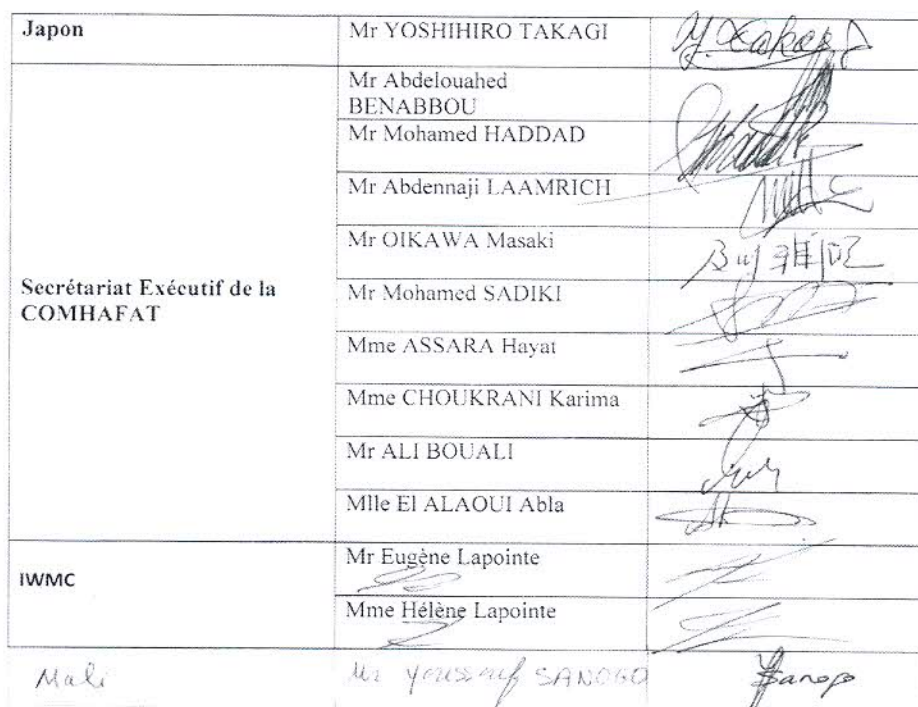 Japon
Mr YOSHIHIRO TAKAGI
Y. Takagi
Secrétariat Exécutif de la
COMHAFAT
Mr Abdelouahed
BENABBOU
Mr Mohamed HADDAD
Mr Abdennaji LAAMRICH
Mr OIKAWA Masaki
雅昭
Mr Mohamed SADIKI
Mme ASSARA Hayat
Mme CHOUKRANI Karima
Mr ALI BOUALI
Mlle El ALAOUI Abla
IWMC
Mr Eugène Lapointe
Mme Hélène Lapointe
Mali
Mr Youssouf SANOGO
Sanogo